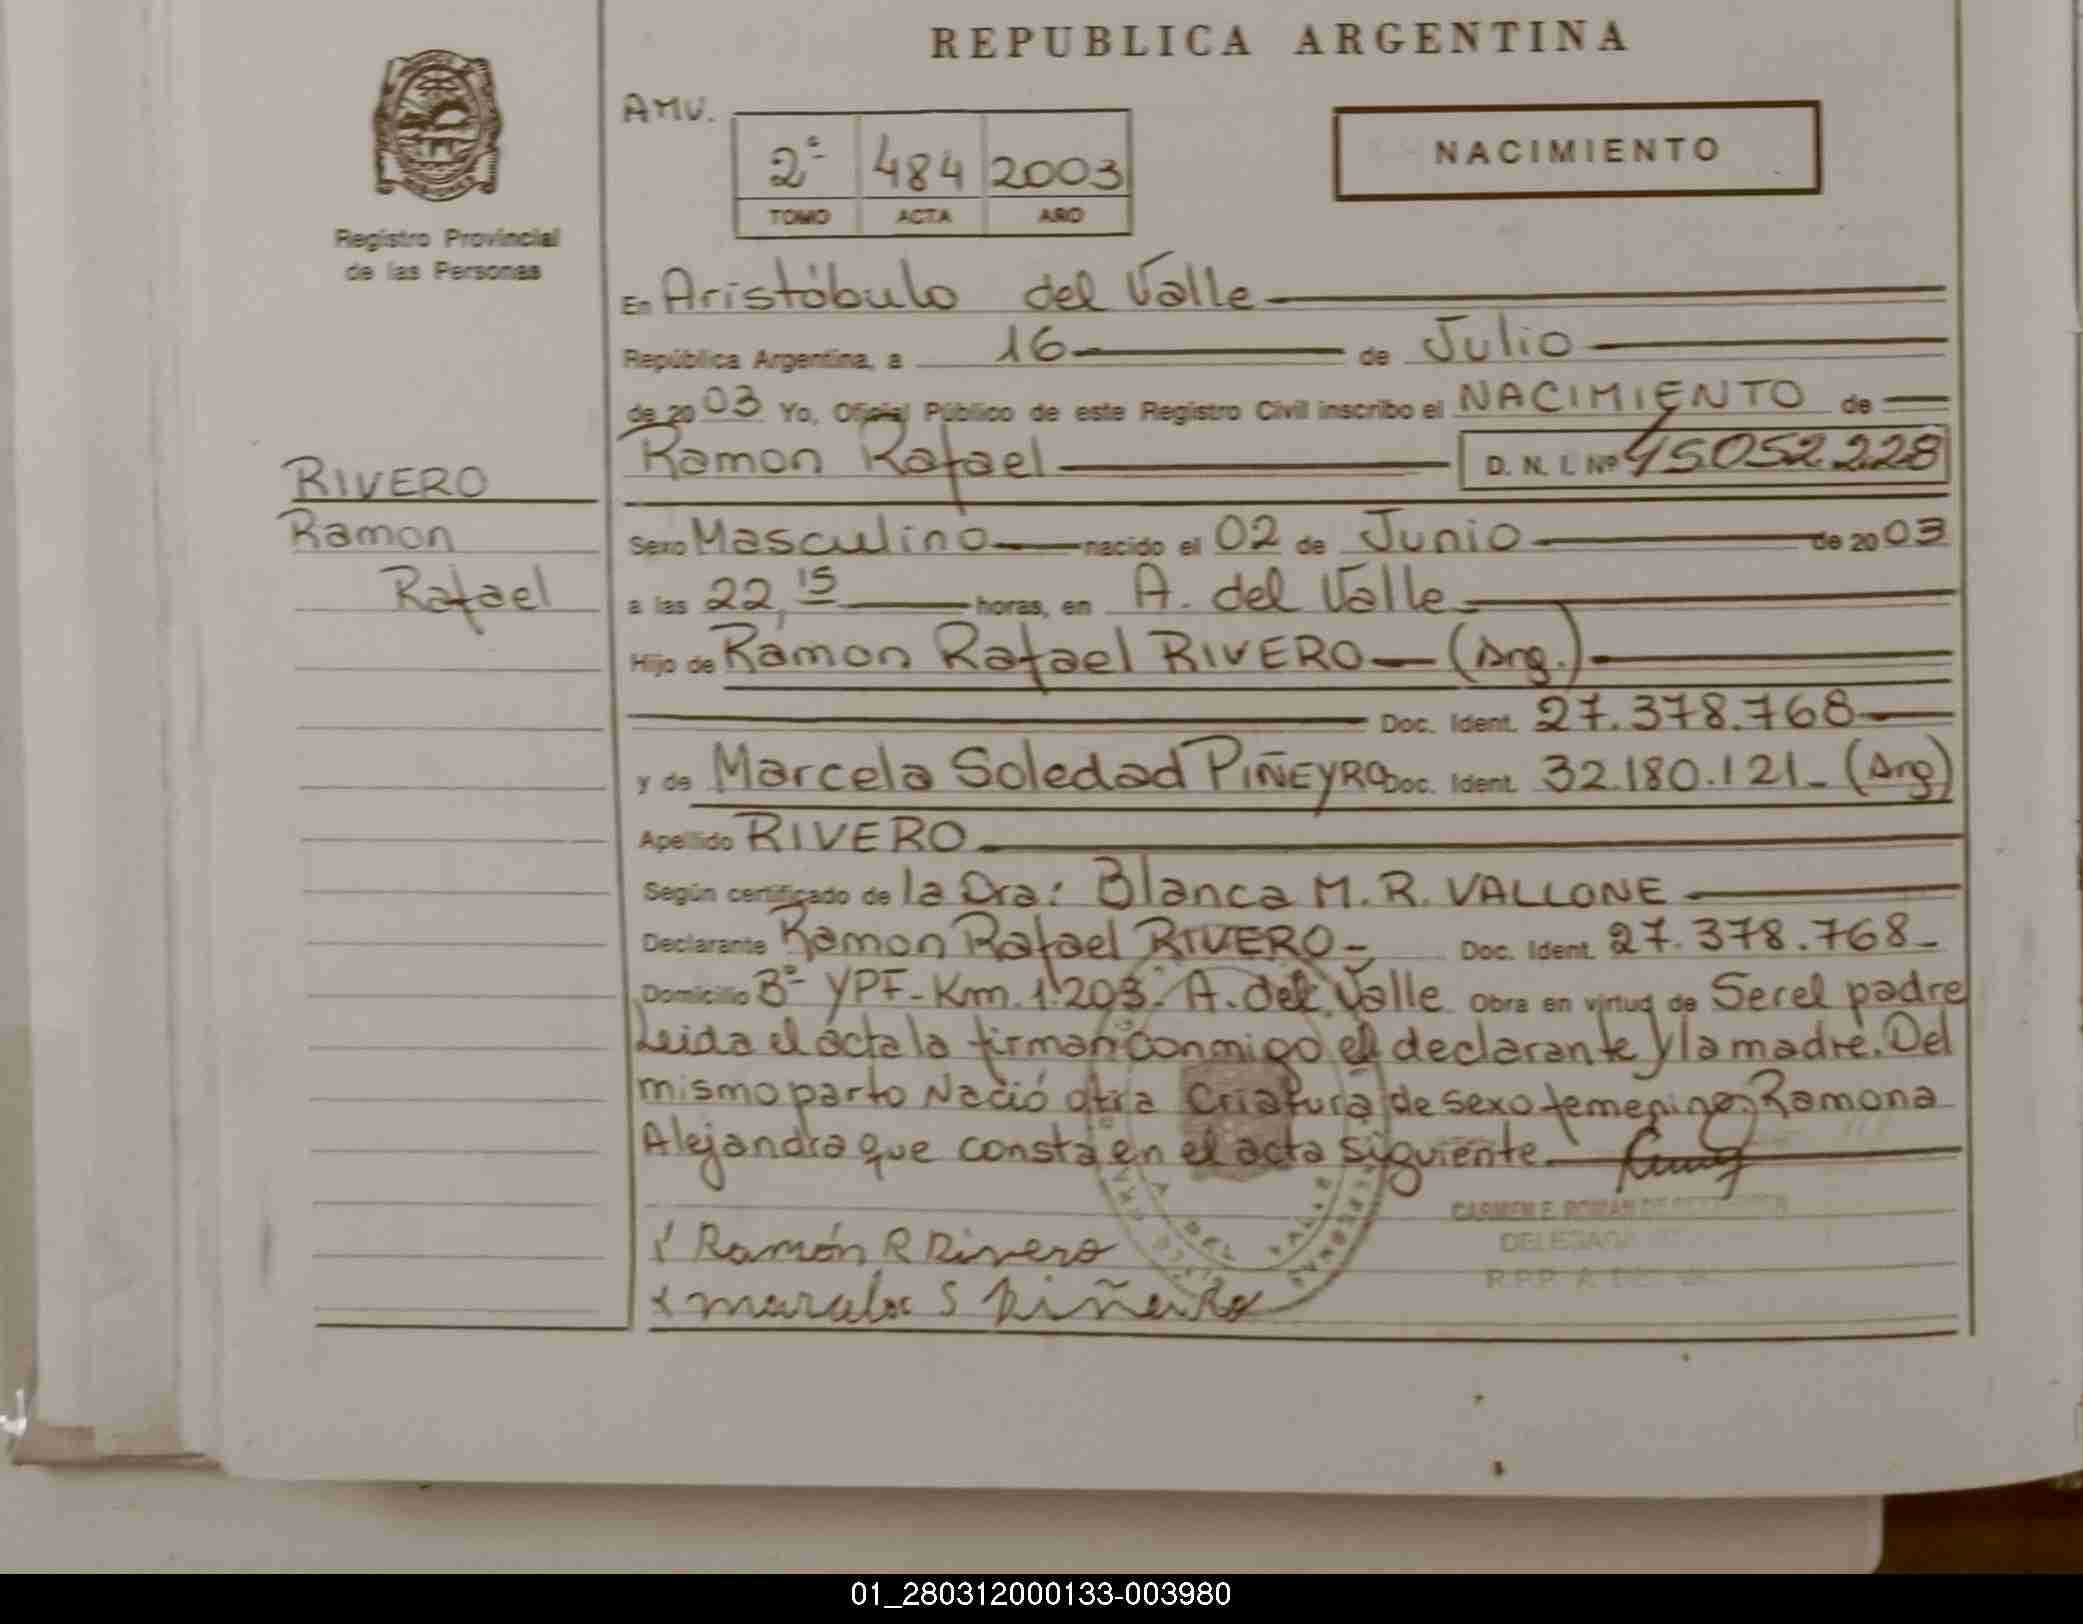 REPUBLICA ARGENTINA
AMV.
2º 484 2003
TOMO ACTA AÑO
NACIMIENTO
Registro Provincial
de las Personas
En Aristóbulo del Valle
República Argentina, a 16 de Julio
de 2003 Yo, Oficial Público de este Registro Civil inscribo el NACIMIENTO de
Ramon Rafael D. N. I. Nº 45052.228
RIVERO
Ramon
Rafael
Sexo Masculino nacido el 02 de Junio de 2003
a las 22,15 horas, en A. del Valle
Hijo de Ramon Rafael RIVERO (Arg.)
Doc. Ident. 27.378.768
y de Marcela Soledad PIÑEYRO Doc. Ident. 32.180.121 (Arg)
Apellido RIVERO
Según certificado de la Dra: Blanca M. R. VALLONE
Declarante Ramon Rafael RIVERO Doc. Ident. 27.378.768
Domicilio Bº YPF-Km. 1.203. A. del Valle Obra en virtud de Ser el padre
Leida el acta la firman conmigo el declarante y la madre. Del
mismo parto Nació otra Criatura de sexo femenino, Ramona
Alejandra que consta en el acta siguiente
CARMEN E. ROMAN DE
DELEGADA
R.P.P. A. DEL VALLE
Ramón R Rivero
Marcela S Piñeyro
01_280312000133-003980